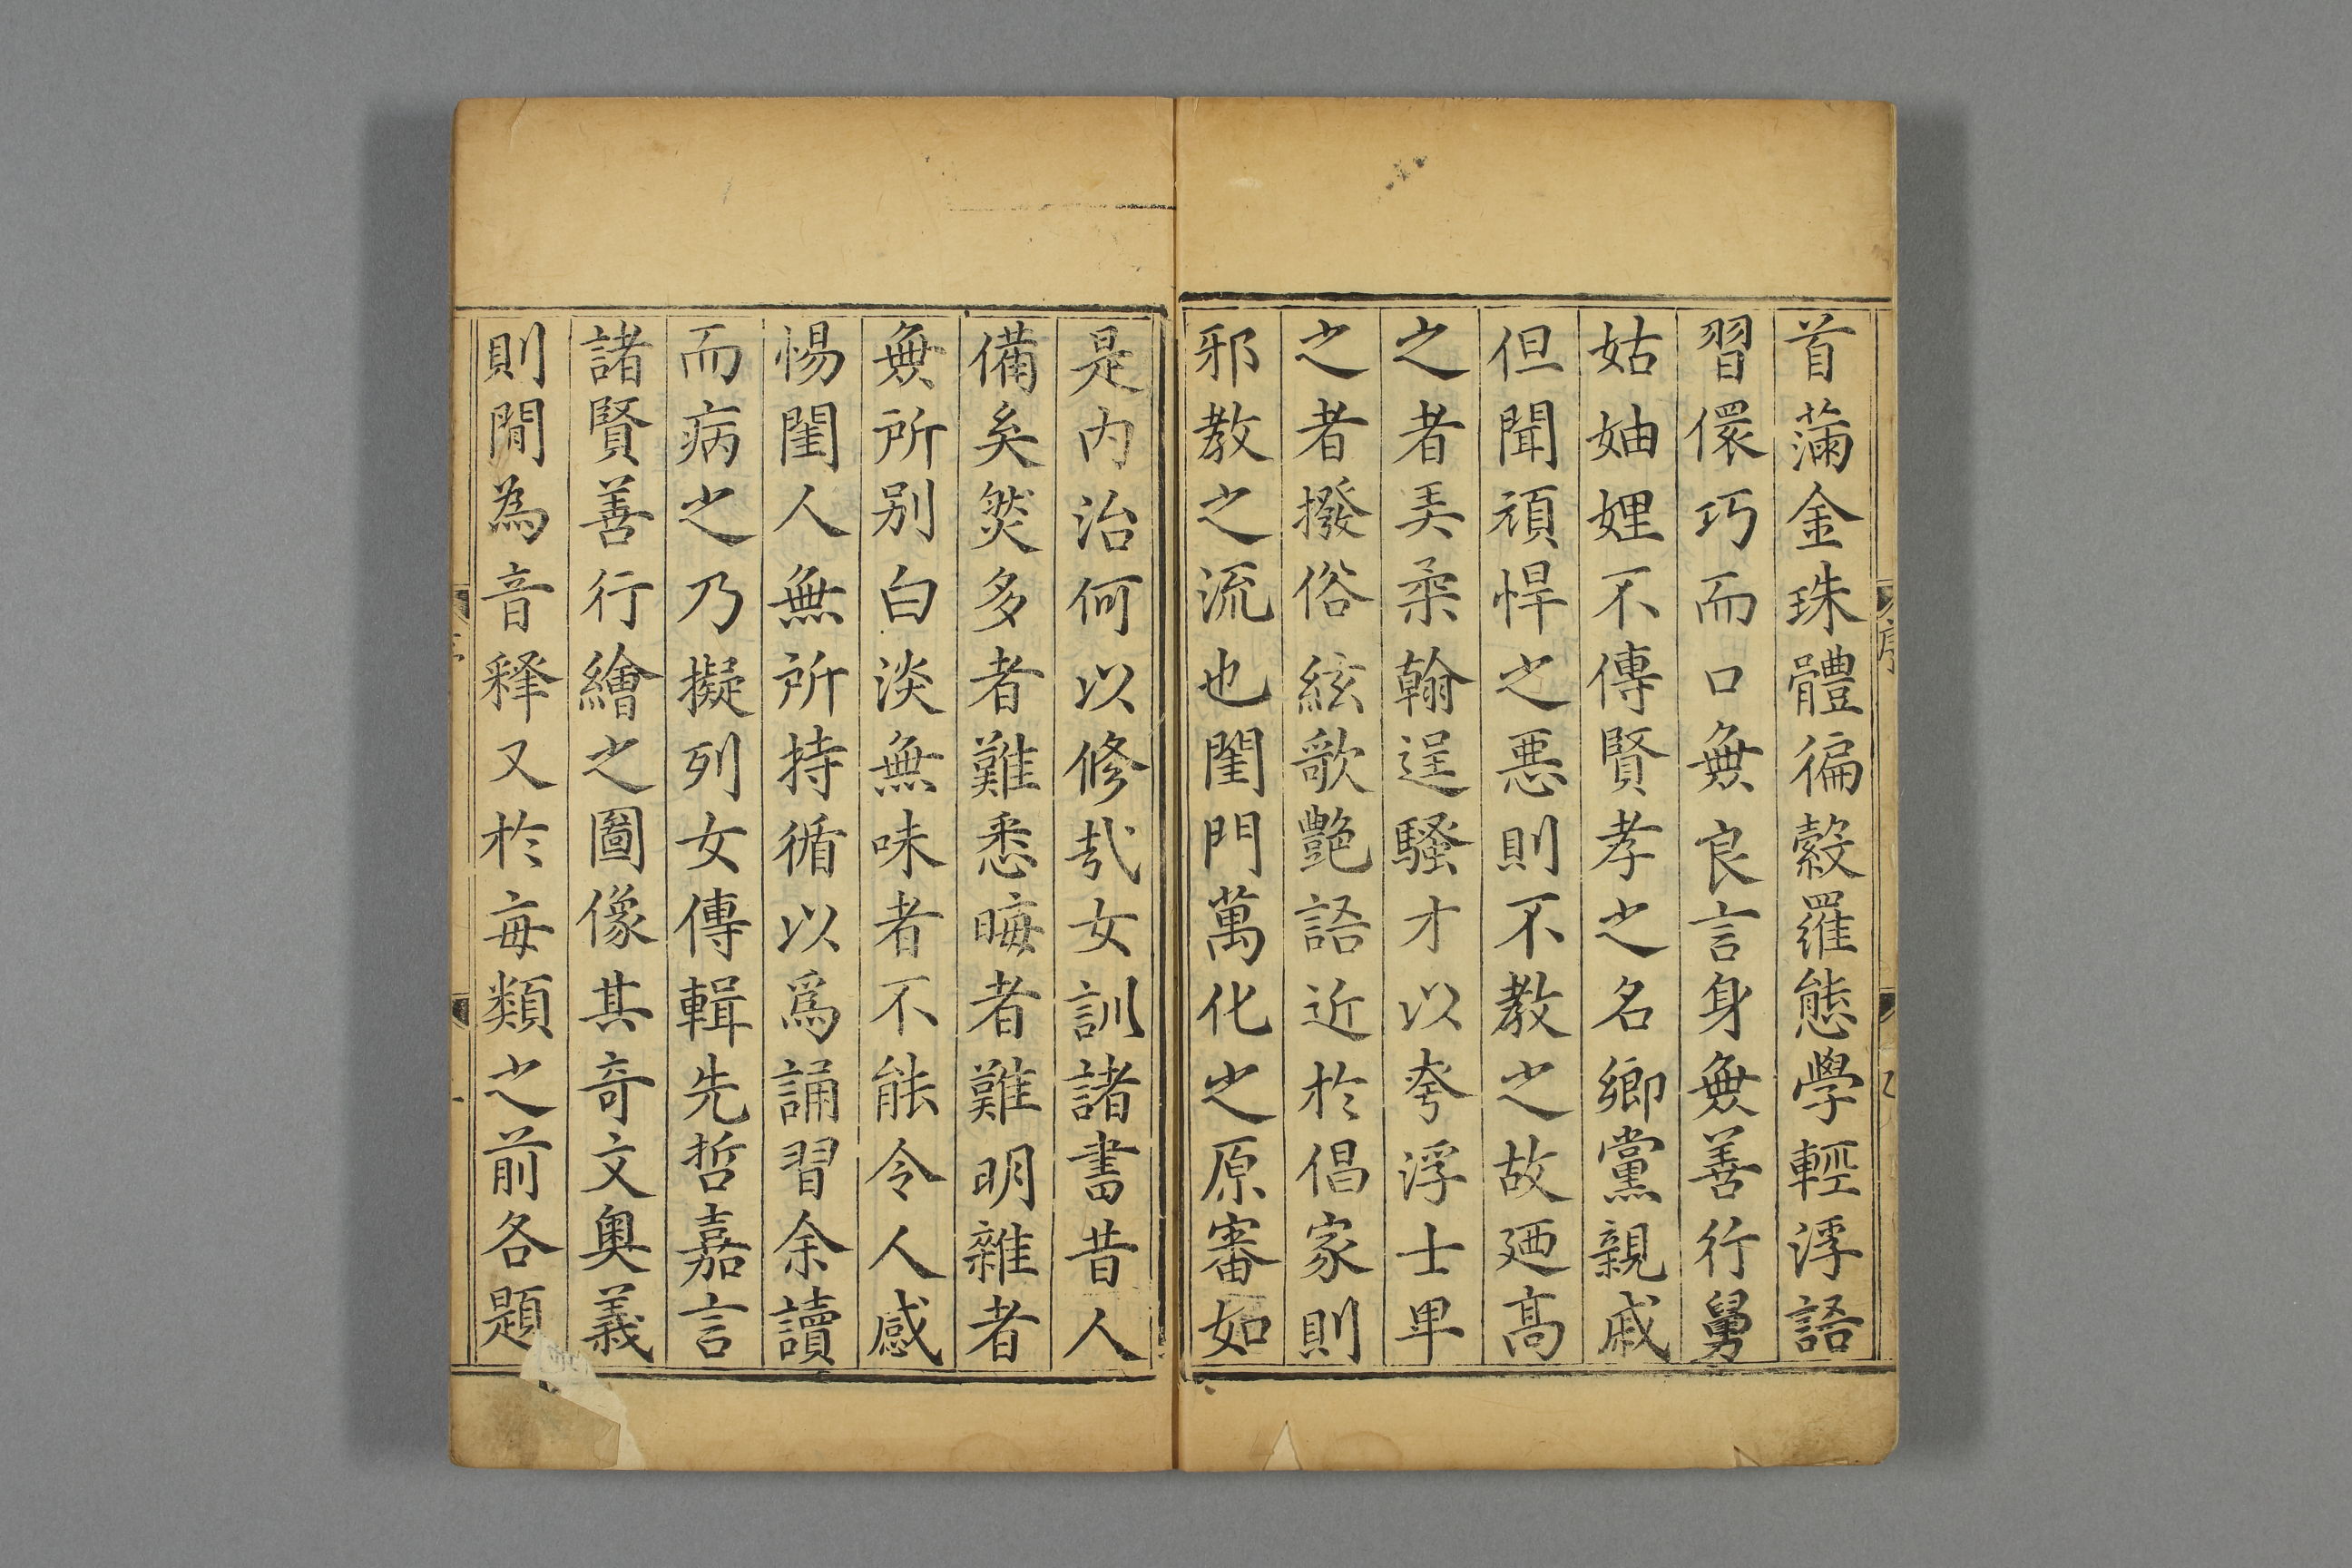 首滿金珠體徧縠羅態學輕浮語
習儇巧而口無良言身無善行舅
姑妯娌不傳賢孝之名鄉黨親戚
但聞頑悍之惡則不教之故廼高
之者弄柔翰逞騷才以夸浮士卑
之者撥俗絃歌艶語近於倡家則
邪教之流也閨門萬化之原審如
是内治何以修哉女訓諸書昔人
備矣然多者難悉晦者難明雜者
無所别白淡無味者不能令人感
惕閨人無所持循以爲誦習余讀
而病之乃擬列女傳輯先哲嘉言
諸賢善行繪之圖像其奇文奥義
則間為音釋又於每類之前各題
序